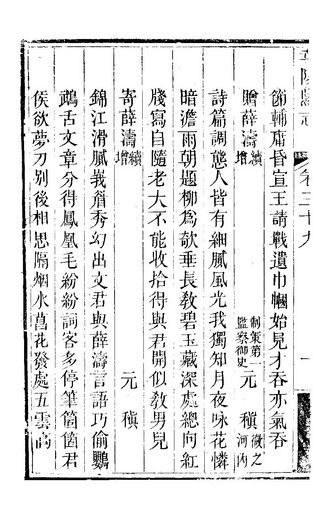 節輔屠昏宣王請戰遺巾幗始見才吞亦氣吞
贈薛濤續增 元稹微之河內制策第一監察御史
詩篇調態人皆有細膩風光我獨知月夜咏花憐
暗澹雨朝題柳為欹垂長教碧玉藏深處總向紅
牋寫自隨老大不能收拾得與君開似教男兒
寄薛濤續增 元稹
錦江滑膩蛾眉秀幻出文君與薛濤言語巧偷鸚
鵡舌文章分得鳳凰毛紛紛詞客多停筆箇箇君
侯欲夢刀别後相思隔烟水菖花發處五雲高
卷三十九